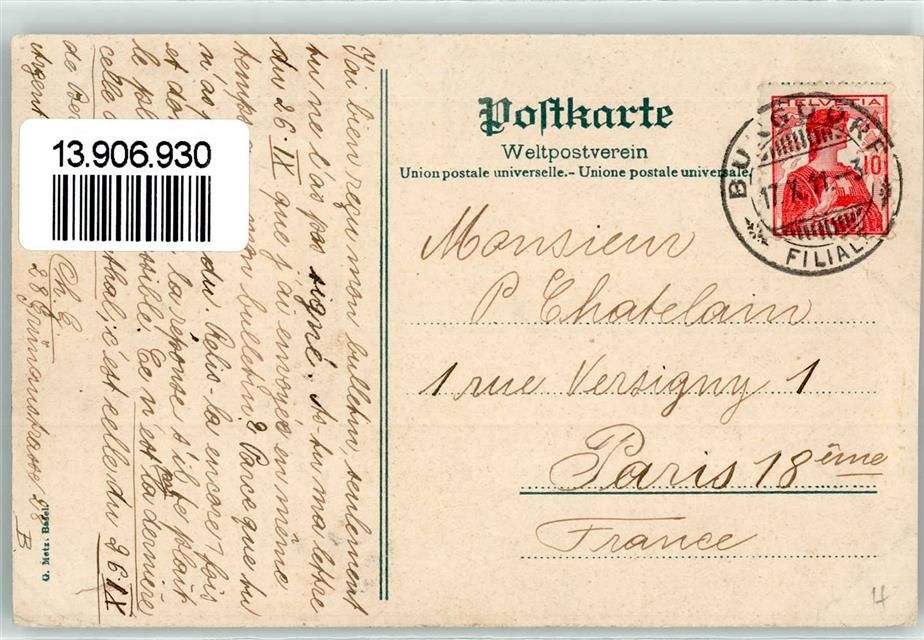 Postkarte
Weltpostverein
Union postale universelle.- Unione postale universale.
HELVETIA
10
BURGDORF
17.X.11.-3
FILIALE
13.906.930
Monsieur
P. Chatelain
1 rue Versigny 1
Paris 18ème
France
J'ai bien reçu mon bulletin, seulement
tu ne l'as pas signé. As-tu ma lettre
du 26 IX que j'ai envoyée en même
temps mon bulletin? Parceque tu
n'as du. Relis-la encore 1 fois
et la réponse s'il te plait
le pl ssible. Ce n'est pas la dernière
celle thal; c'est celle du 26.IX
de
Argent
Ch. E.
28 28
B
G. Metz, Basel.
4